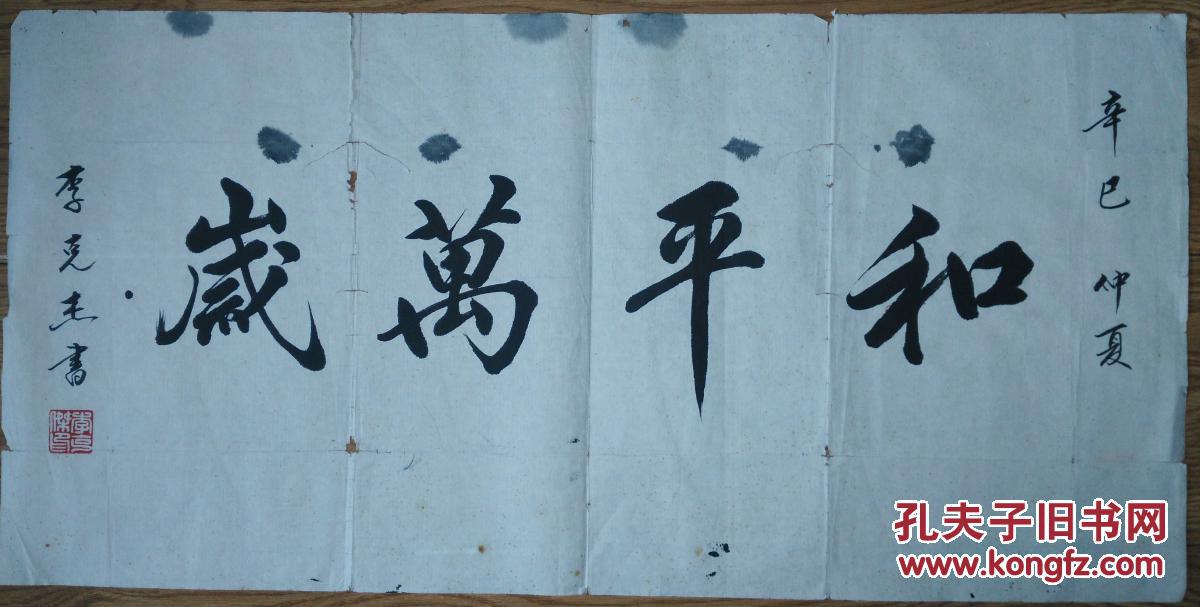 辛巳 仲夏
和平萬歲
李克杰書
孔夫子旧书网
www.kongfz.com